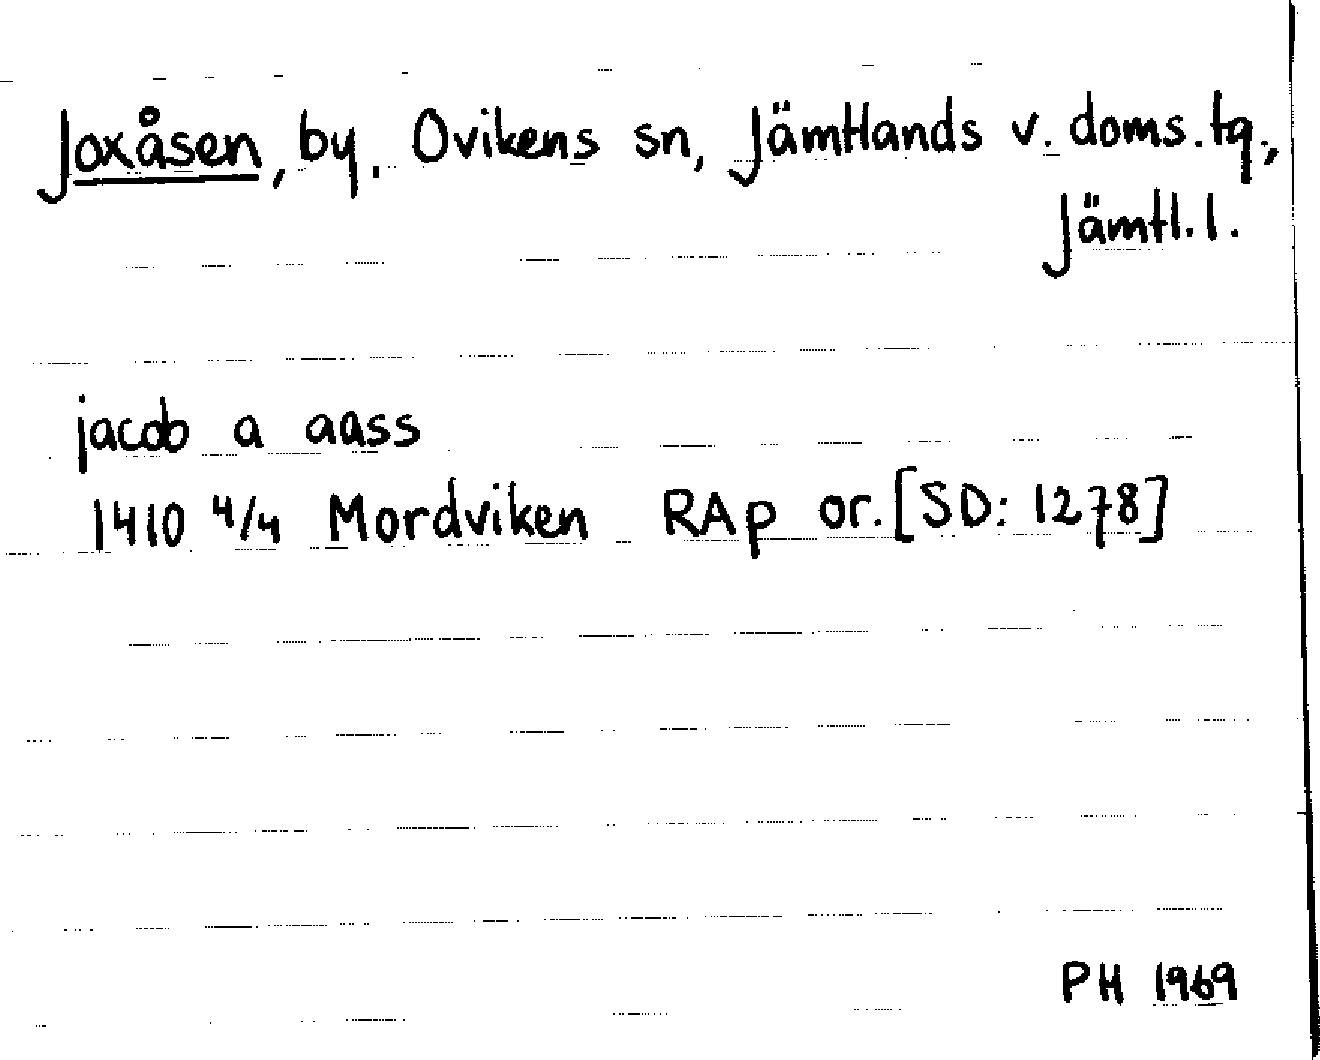 Joxåsen, by. Ovikens sn, Jämtlands v. doms.tg.,
Jämtl.l.
jacob a aass
1410 4/4 Mordviken RAp or. [SD: 1278]
PH 1969